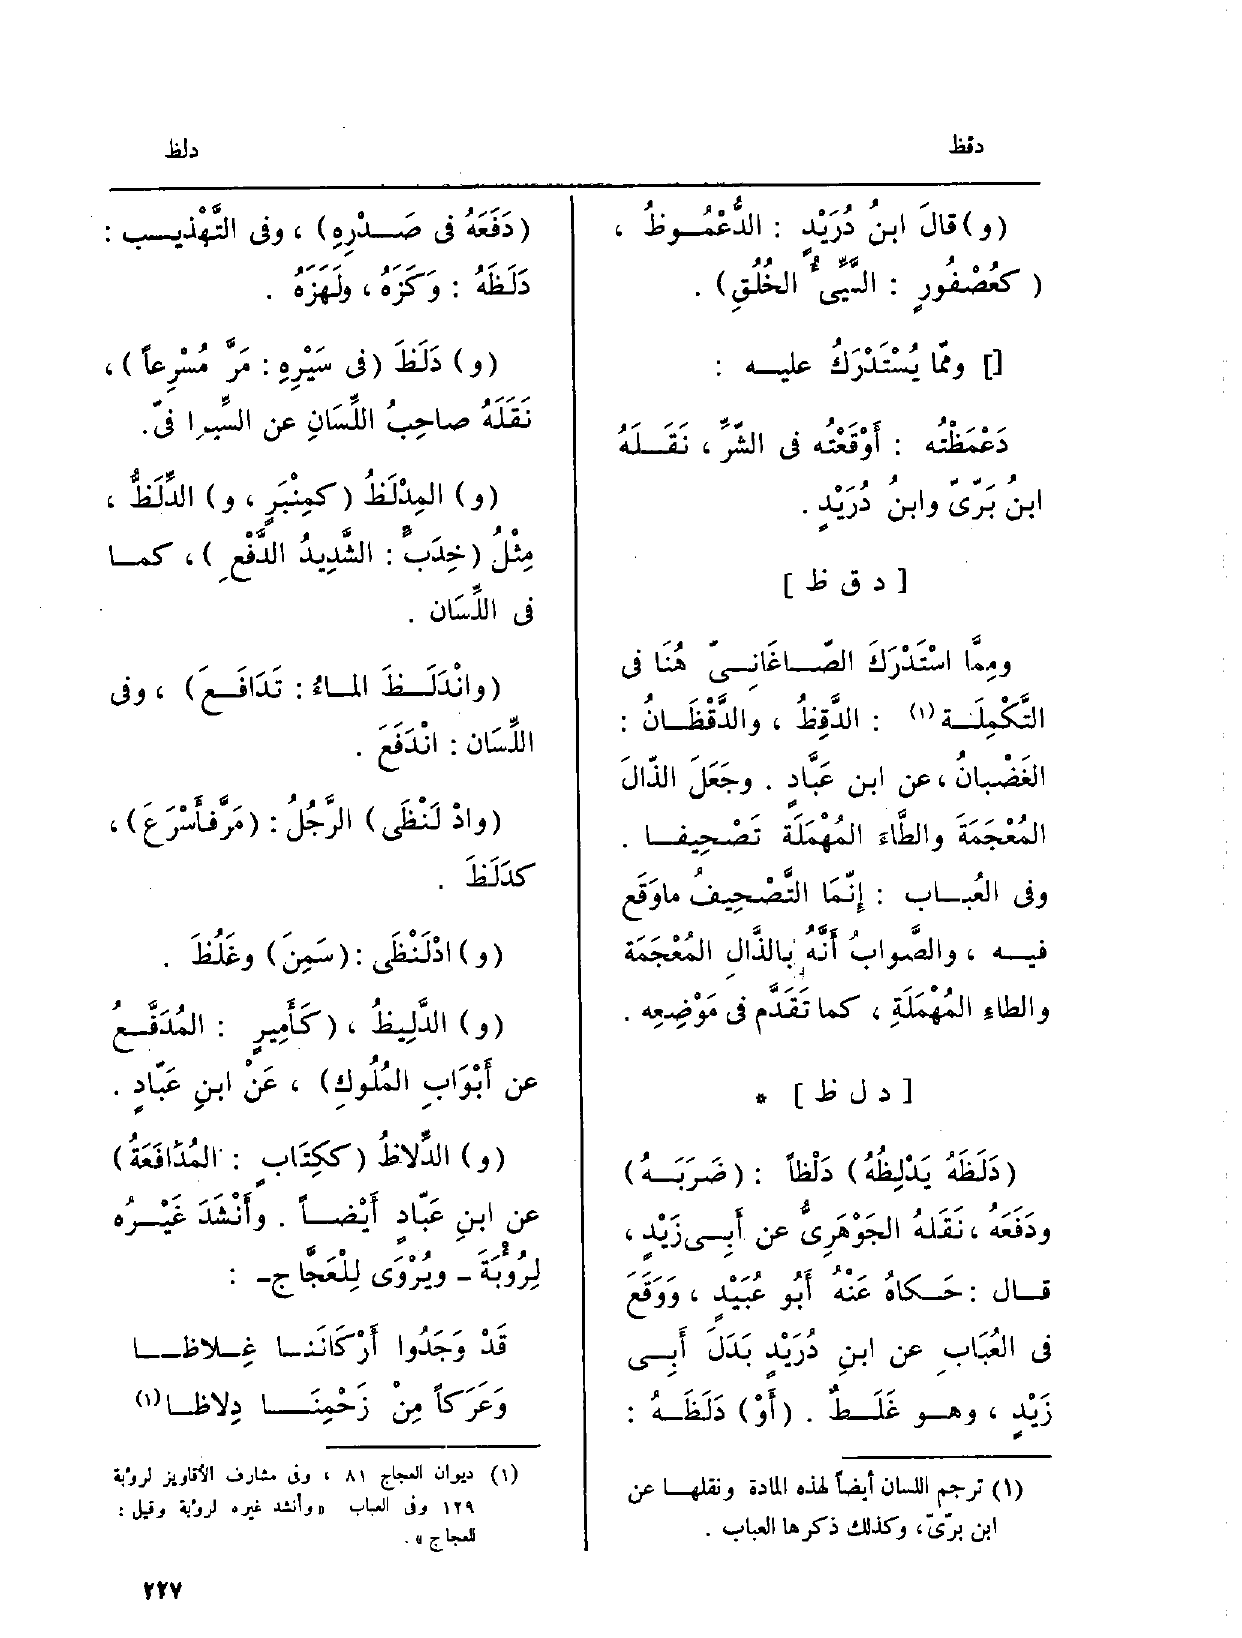 دقظ
دلظ
(و) قالَ ابنُ دُرَيْدٍ : الدُّعْمُـوظُ ،
( كعُصْفُورٍ : السَّيِّئُ الخُلُقِ ) .
[] وممّا يُسْتَدْرَكُ عليـه :
دَعْمَظْتُه : أَوْقَعْتُه فى الشَّرِّ ، نَقَـلَهُ
ابنُ بَرِّىّ وابنُ دُرَيْدٍ .
[ د ق ظ ]
ومِمَّا اسْتَدْرَكَ الصّـاغَانِـىّ هُنَا فى
التَّكْمِلَـة (١) : الدَّقِظُ ، والدَّقْظَـانُ :
الغَضْبانُ ، عن ابن عَبَّادٍ . وجَعَلَ الذّالَ
المُعْجَمَةَ والطَّاءَ المُهْمَلَةَ تَصْحِيفـا .
وفى العُبـاب : إِنَّمَا التَّصْحِيفُ ماوَقَع
فيـه ، والصَّوابُ أَنَّهُ بالذَّالِ المُعْجَمَة
والطاءِ المُهْمَلَةِ ، كما تَقَدَّم فى مَوْضِعِه .
[ د ل ظ ] *
(دَلَظَهُ يَدْلِظُهُ) دَلْظاً : (ضَرَبَـهُ)
ودَفَعَه ، نَقَلهُ الجَوْهَرِىُّ عن أَبِـى زَيْدٍ ،
قـال : حَـكاهُ عَنْهُ أَبُو عُبَيْدٍ ، ووَقَعَ
فى العُبَابِ عن ابنِ دُرَيْدٍ بَدَلَ أَبِـى
زَيْدٍ ، وهـو غَلَـطٌ . (أَوْ) دَلَظَـهُ :
(١) ترجم اللسان أيضاً لهذه المادة ونقلهـا عن
ابن برّىّ ، وكذلك ذكرها العباب .
(دَفَعَهُ فى صَـدْرِهِ) ، وفى التَّهْذِيـب :
دَلَظَهُ : وَكَزَهُ ، ولَهَزَهُ .
(و) دَلَظَ (فى سَيْرِهِ : مَرَّ مُسْرِعاً) ،
نَقَلَهُ صاحِبُ اللِّسَانِ عن السِّيرافىّ .
(و) المِدْلَظُ (كمِنْبَرٍ ، و) الدِّلَظُّ ،
مِثْلُ (خِدَبٍّ : الشَّدِيدُ الدَّفْعِ ) ، كمـا
فى اللِّسَان .
(وانْدَلَـظَ المـاءُ : تَدَافَـعَ) ، وفى
اللِّسَان : انْدَفَعَ .
(وادْلَنْظَى) الرَّجُلُ : (مَرَّفأَسْرَعَ) ،
كدَلَظَ .
(و) ادْلَنْظَى : (سَمِنَ) وغَلُظَ .
(و) الدَّلِيظُ ، (كَأَمِيرٍ : المُدَفَّـعُ
عن أَبْوَابِ المُلُوكِ) ، عَنْ ابنِ عَبّادٍ .
(و) الدِّلاظُ (ككِتَابٍ : المُدَافَعَةُ)
عن ابنِ عَبّادٍ أَيْضـاً . وأَنْشَدَ غَيْـرُه
لِرُؤْبَةَ - ويُرْوَى لِلْعَجَّاجِ - :
قَدْ وَجَدُوا أَرْكَانَنـا غِـلاظـا
وَعَرَكاً مِنْ زَحْمِنَـا دِلاظـا (١)
(١) ديوان العجاج ٨١ ، وفى مشارف الأقاويز لرؤبة
١٢٩ وفى العباب « وأنشد غيره لرؤبة وقيل :
للعجاج » .
٢٢٧